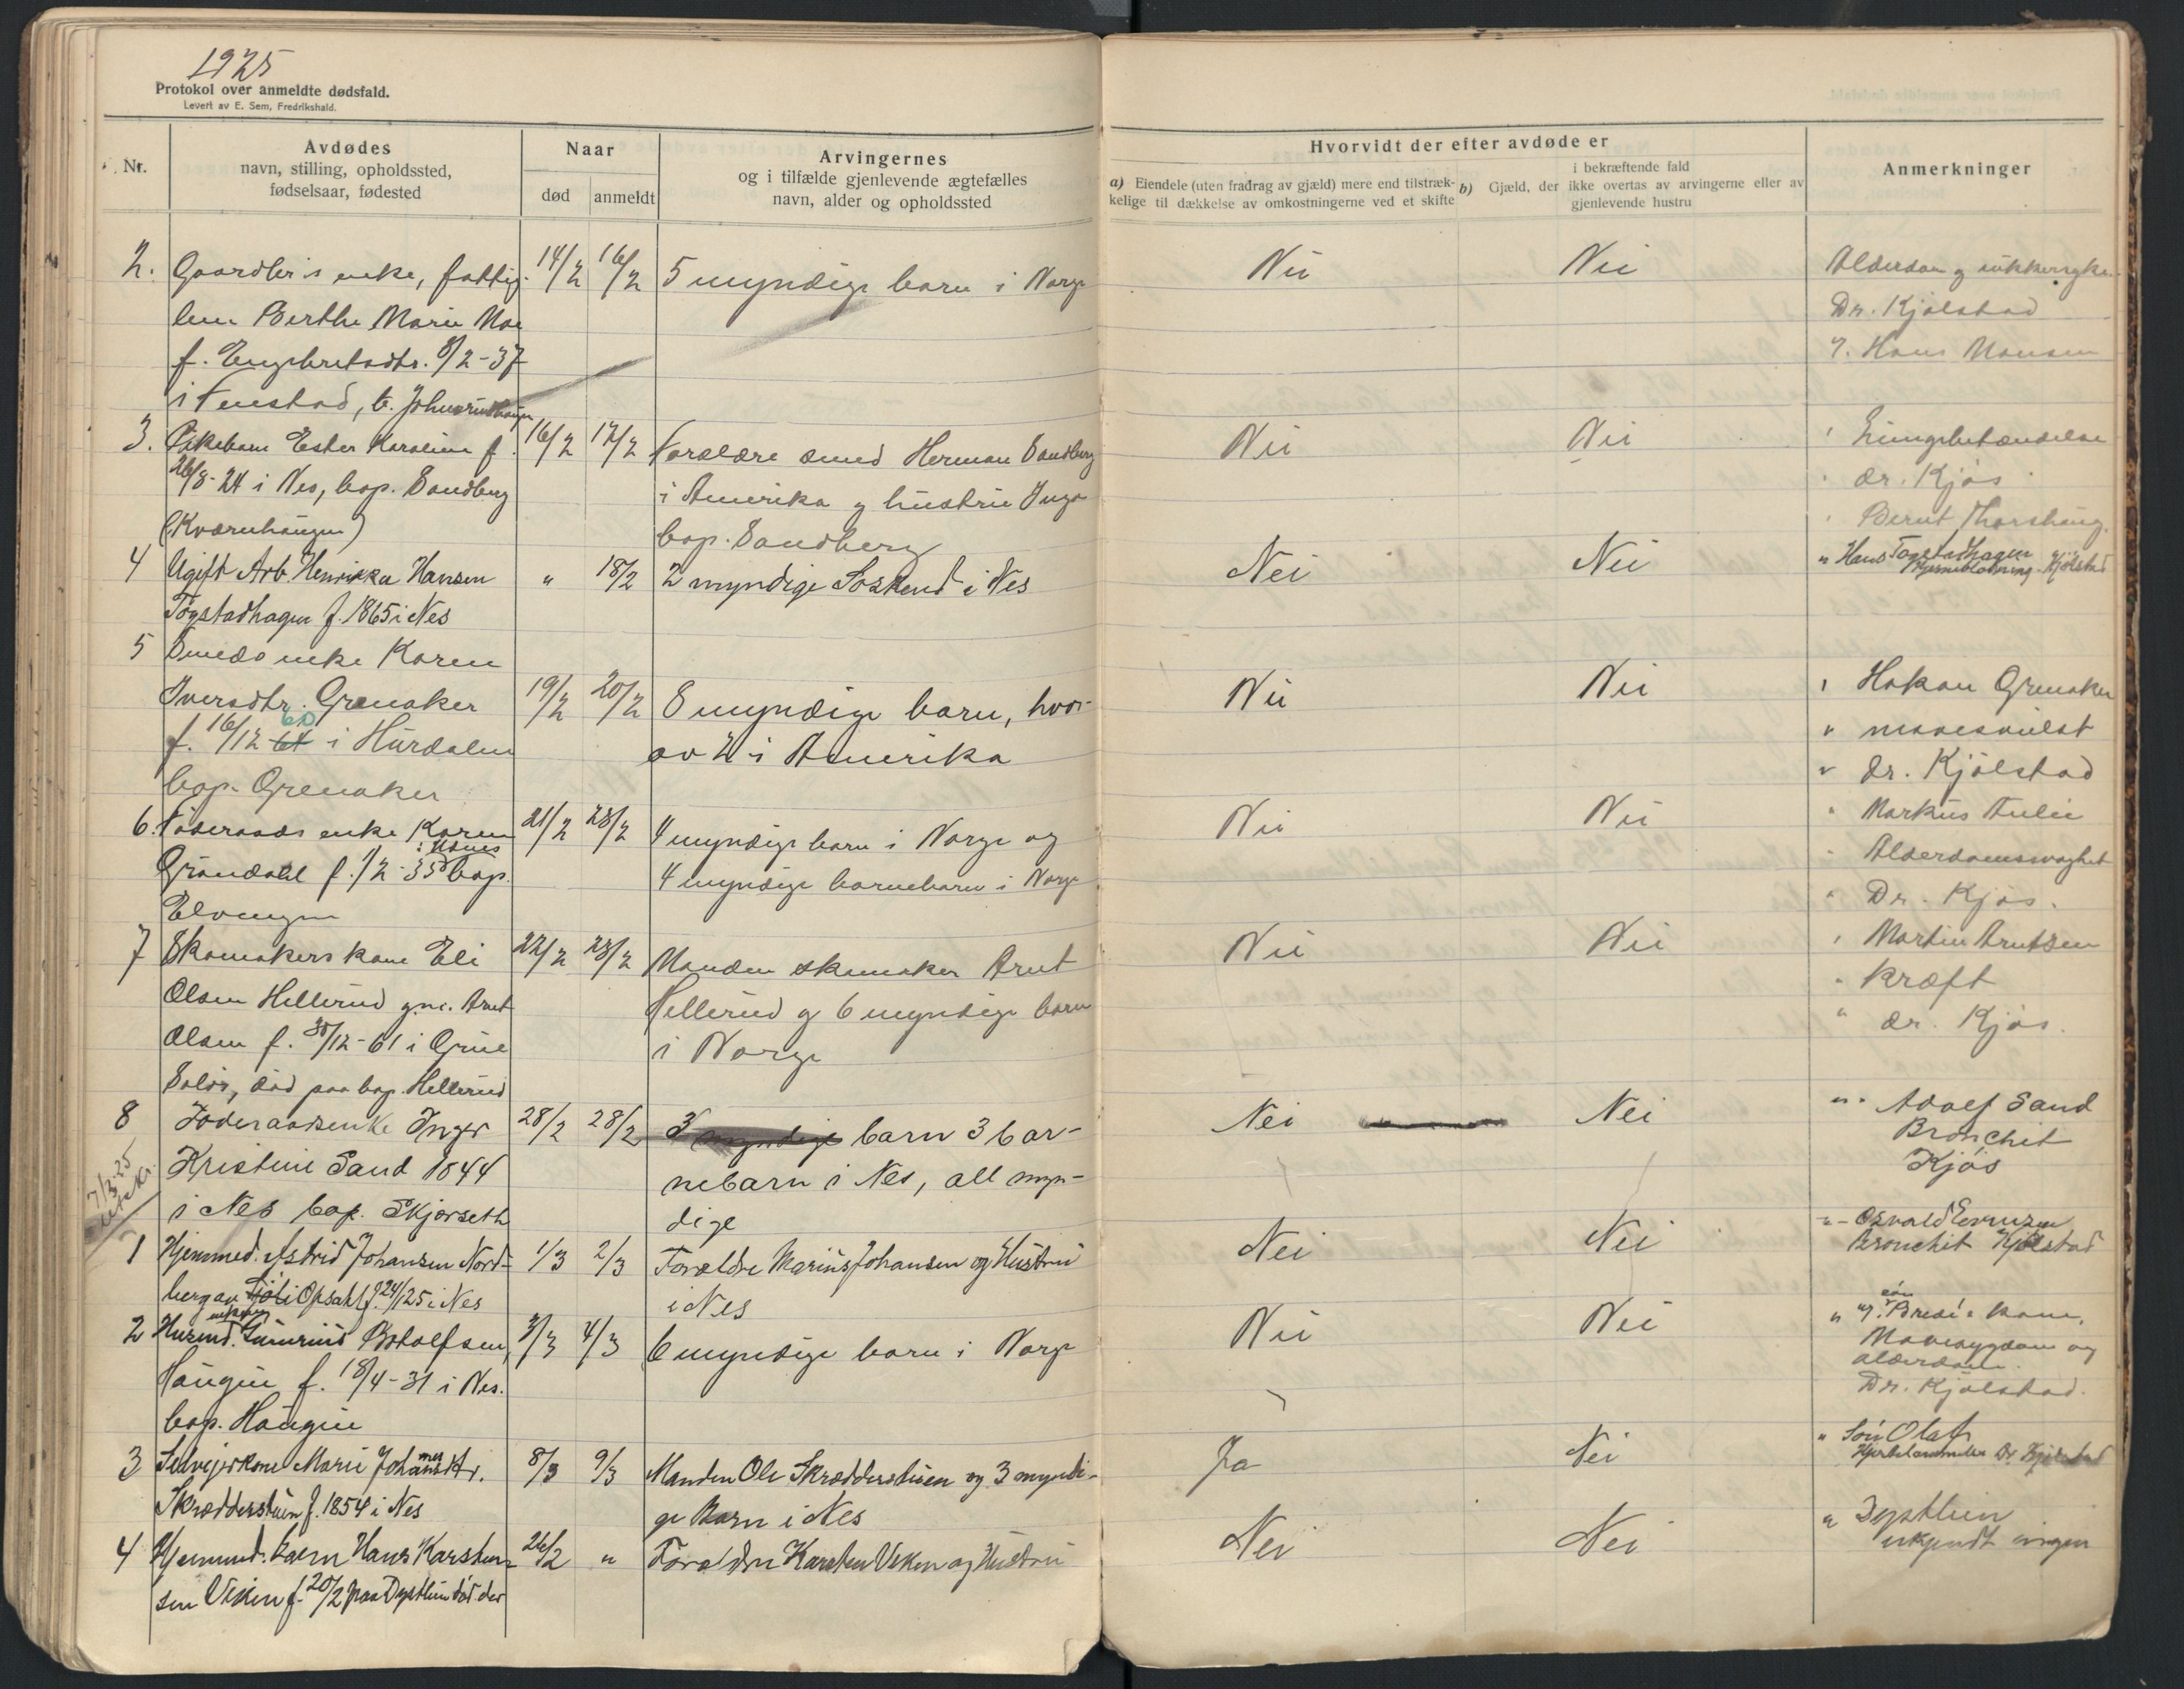 1925
Protokol over anmeldte dødsfald.
Levert av E. Sem, Fredrikshald.
Nr.
Avdødes
navn, stilling, opholdssted,
fødselsaar, fødested
Naar
død
anmeldt
Arvingernes
og i tilfælde gjenlevende ægtefælles
navn, alder og opholdssted
Hvorvidt der efter avdøde er
a) Eiendele (uten fradrag av gjæld) mere end tilstræk-
kelige til dækkelse av omkostningerne ved et skifte
b) Gjæld, der
i bekræftende fald
ikke overtas av arvingerne eller av
gjenlevende hustru
Anmerkninger
2. enke, fattig- 14/2 16/2 5 myndige barn i Norge Nei Nei Alderdom og
lem Berthe Marie Moe Dr. Kjølstad
f. Engebretsdtr. 8/2-37 Hans
i Fenstad, b.
3. Pikebarn Ester Karoline f. 16/2 17/2 Forældre smed Herman Sandberg Nei Nei Lungebetændelse
26/8-24 i Nes, bop. Sandberg i Amerika og hustru Inga dr. Kjøs
(Kværnhaugen) bop. Sandberg Bernt
4 Ugift Arb. Henrikka Hansen " 18/2 2 myndige Søskend i Nes Nei Nei " Hans Togstadhagen
Hjerneblødning - Kjølstad
Togstadhagen f. 1865 i Nes
5 Smeds enke Karen
Iversdtr. Grenaker 19/2 20/2 8 myndige barn, hvor- Nei Nei " Hakon Grenaker
f. 16/12-64 60 i Hurdalen av 2 i Amerika " mavesvulst
bop. Grenaker " dr. Kjølstad
6. Føderaads enke Karen 21/2 23/2 4 myndige barn i Norge og Nei Nei " Markus
Grøndahl f. 1/2-35 i Udnes bop. 4 myndige barnebarn i Norge " Alderdomssvaghet
" Dr. Kjøs.
7 Skomakers kone Eli 22/2 23/2 Manden skomaker Arnt Nei Nei " Martin Arntsen
Olsen Hellerud g.m. Arnt Hellerud og 6 myndige barn " Kræft
Olsen f. 30/12-61 i Grue i Norge " dr. Kjøs.
Solør, død paa bop. Hellerud
8 Føderaadsenke Inger 28/2 28/2 3 myndige barn 3 bar- Nei Nei " Adolf Sand
Kristine Sand 1844 nebarn i Nes, all myn- Bronchit
i Nes bop. Skjørseth dige Kjøs
7/3-25
1 Hjemmed. Astrid Johansen Nord- 1/3 2/3 Forældre Marius Johansen og Hustru Nei Nei "
berg av Opsahl f. 24/1 25 i Nes i Nes Bronchit Kjølstad
2 Husmd. enkem Botolfsen, 3/3 4/3 6 myndige barn i Norge Nei Nei " kone,
Haugen f. 18/4-31 i Nes. Mavesygdom og
alderdom.
bop. Haugen Dr. Kjølstad.
3 Selveierkone Marie Johannesdtr. 8/3 9/3 Manden Ole Skrædderstuen og 3 myndi- Ja Nei " Søn Olaf
Skrædderstuen f. 1854 i Nes ge Barn i Nes Dr. Kjølstad
4 Hjemmed. barn Hans Karsten- 26/2 " Forældre Karsten Viken og Hustru Nei Nei " Dystlien
sen Viken f. 20/2 paa Dystlien død der ukjendt ingen